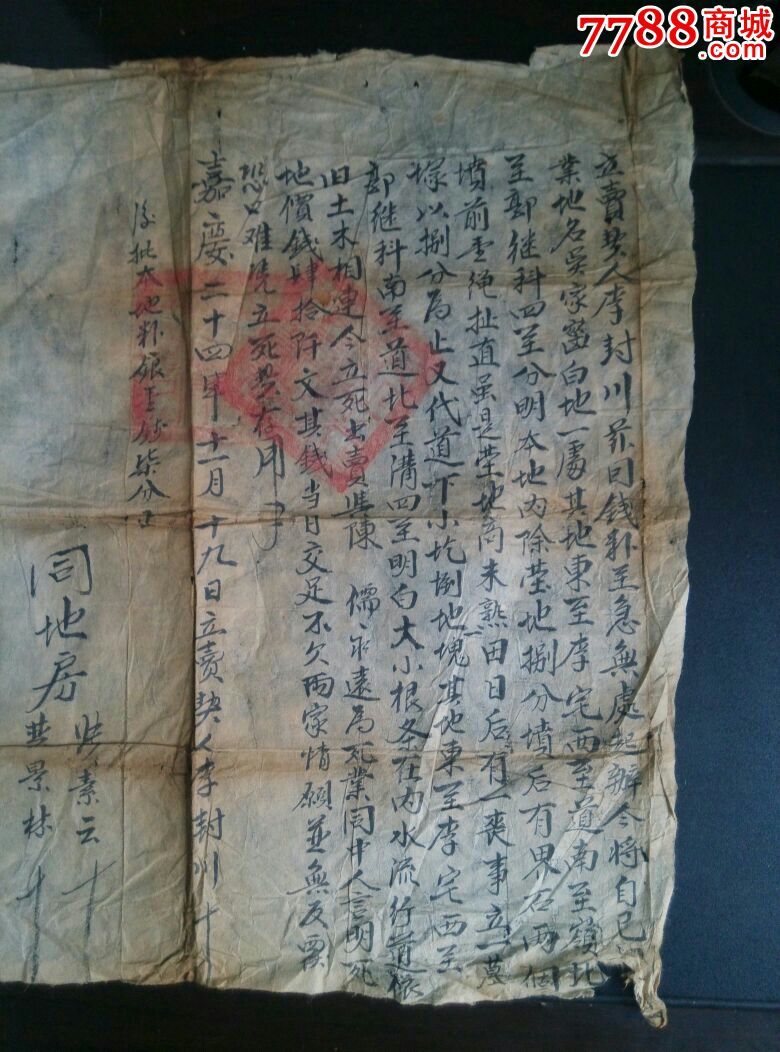 7788商城
.com
立賣契人李封川茶囙錢粆至急無處起辦今將自己
業地名吳家窑白地一處其地東至李宅西至道南至嶺北
至郭继科四至分明本地内除塋地捌分墳后有界石兩個
墳前至绳扯直虽是塋地尚未熟田日后有一喪事立一墓
塚以捌分為止又代道下小圪㘭地塊其地東至李宅西至
郭继科南至道北至溝四至明白大小根条在内水流行道依
旧土木相連今立死出賣与陳 儒永遠為死業同中人言明死
地價錢肆拾阡文其錢当日交足不欠两家情願並無反悔
恐口难凭立死契存用
嘉慶二十四年十一月十九日立賣契人李封川十
後批本地粆銀壹錢柒分
同地房
素云十
景林十